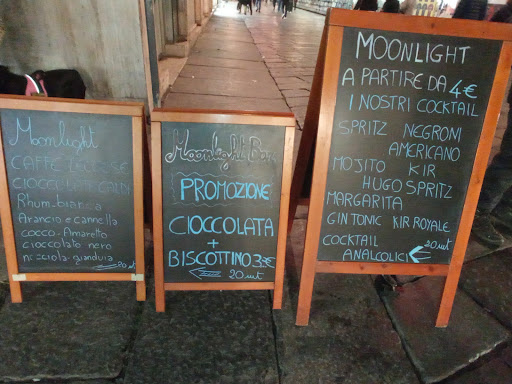 Moonlight
CAFFE'
CIOCCOLATE CALDE
Rhum-bianca
Arancio e cannella
cocco. Amaretto
cioccolato nero
nocciola-gianduia
20 mt
Moonlight Bar
PROMOZIONE
CIOCCOLATA
+
BISCOTTINO 3€
20 mt
MOONLIGHT
A PARTIRE DA 4€
I NOSTRI COCKTAIL
SPRITZ NEGRONI
AMERICANO
MOJITO KIR
HUGO SPRITZ
MARGARITA
GIN TONIC KIR ROYALE
COCKTAIL 20 mt
ANALCOLICI